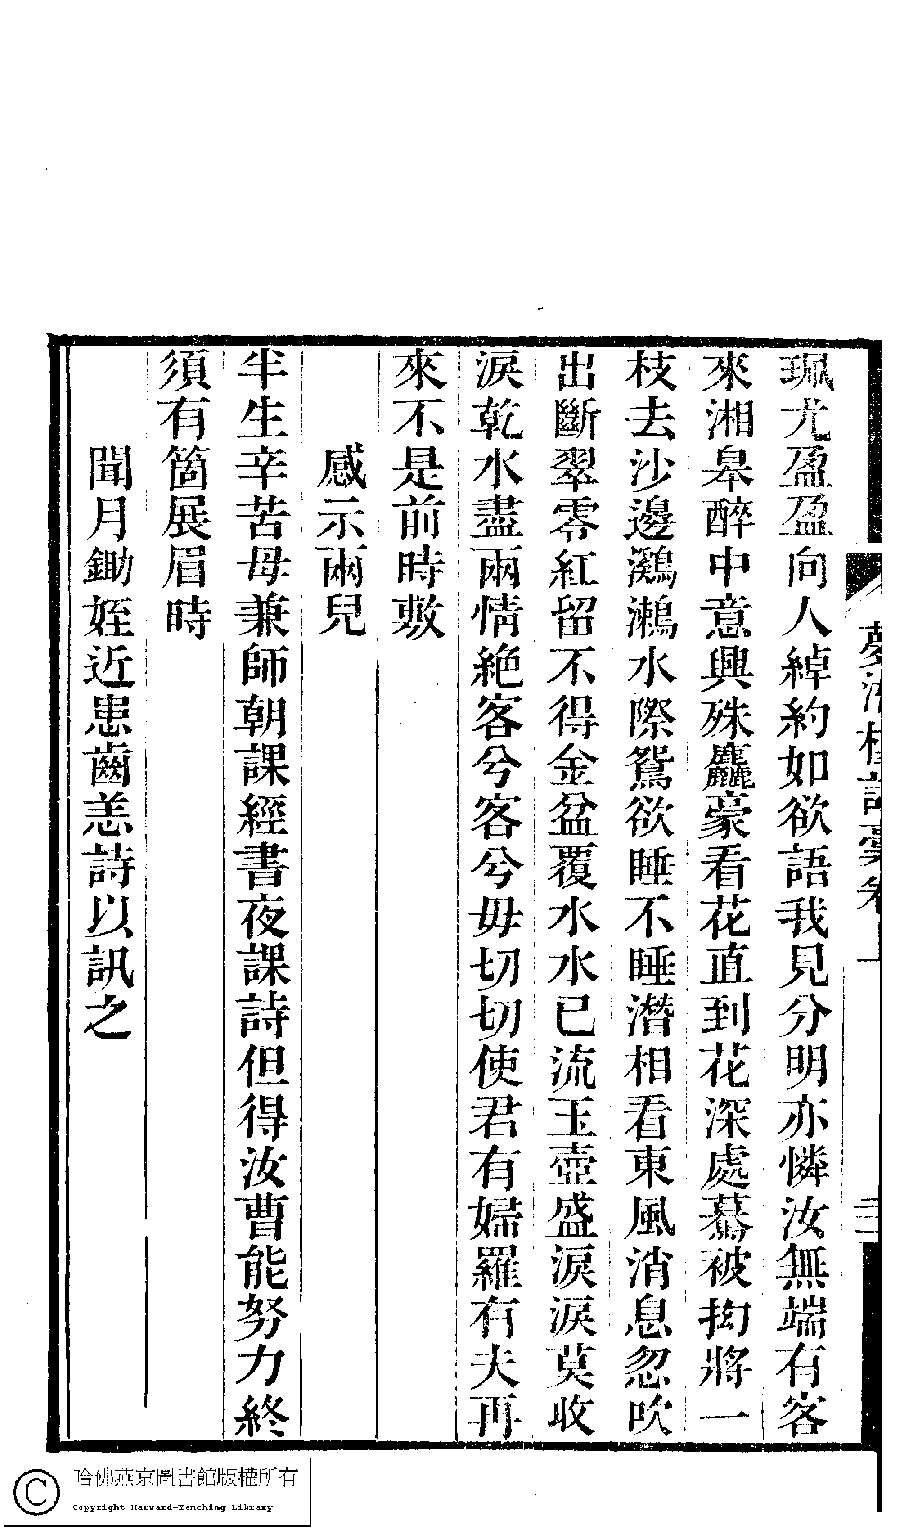 珮尤盈盈向人綽約如欲語我見分明亦憐汝無端有客
來湘皋醉中意興殊麤豪看花直到花深處驀被掐將一
枝去沙邊鸂鶒水際鴛欲睡不睡潛相看東風消息忽吹
出斷翠零紅留不得金盆覆水水已流玉壺盛淚淚莫收
淚乾水盡兩情絶客兮客兮毋切切使君有婦羅有夫再
來不是前時敷
感示兩兒
半生辛苦母兼師朝課經書夜課詩但得汝曹能努力終
須有箇展眉時
聞月鋤姪近患齒恙詩以訊之
哈佛燕京圖書館版權所有
Copyright Harvard-Yenching Library